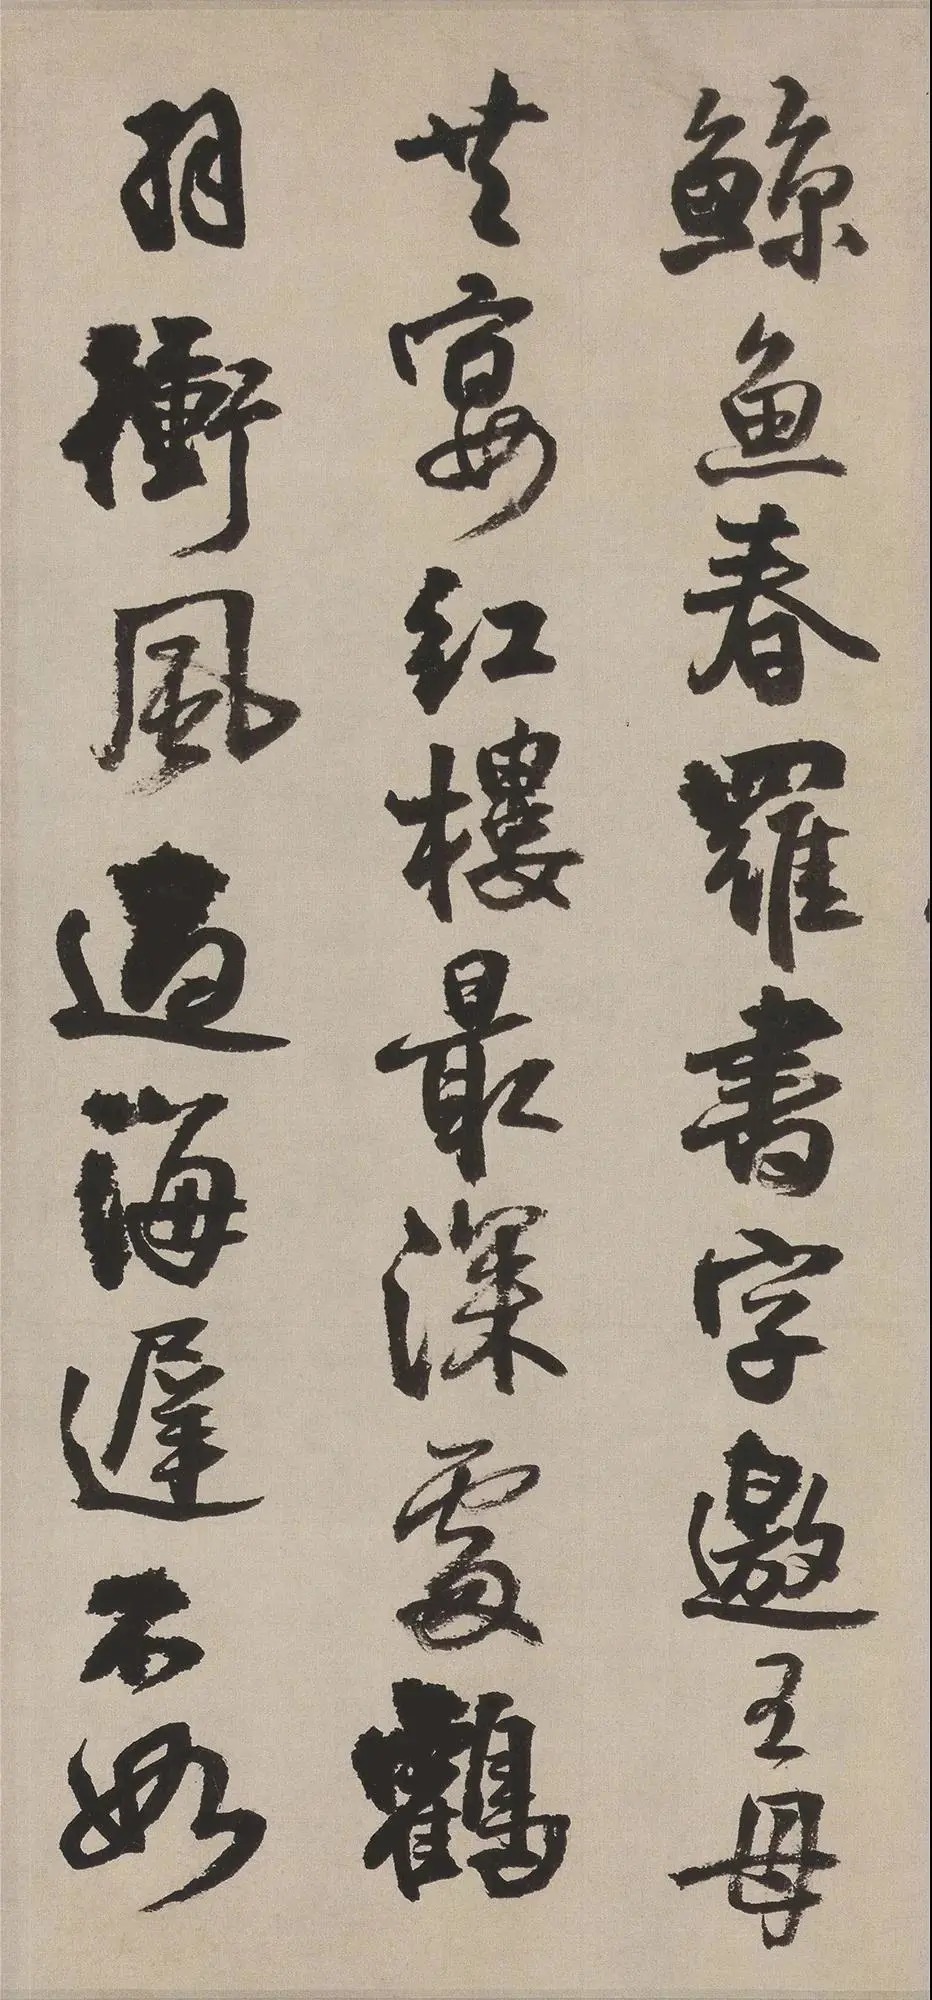 鯨魚春羅書字邀王母
共宴紅樓最深處鶴
羽衝風過海遲不如